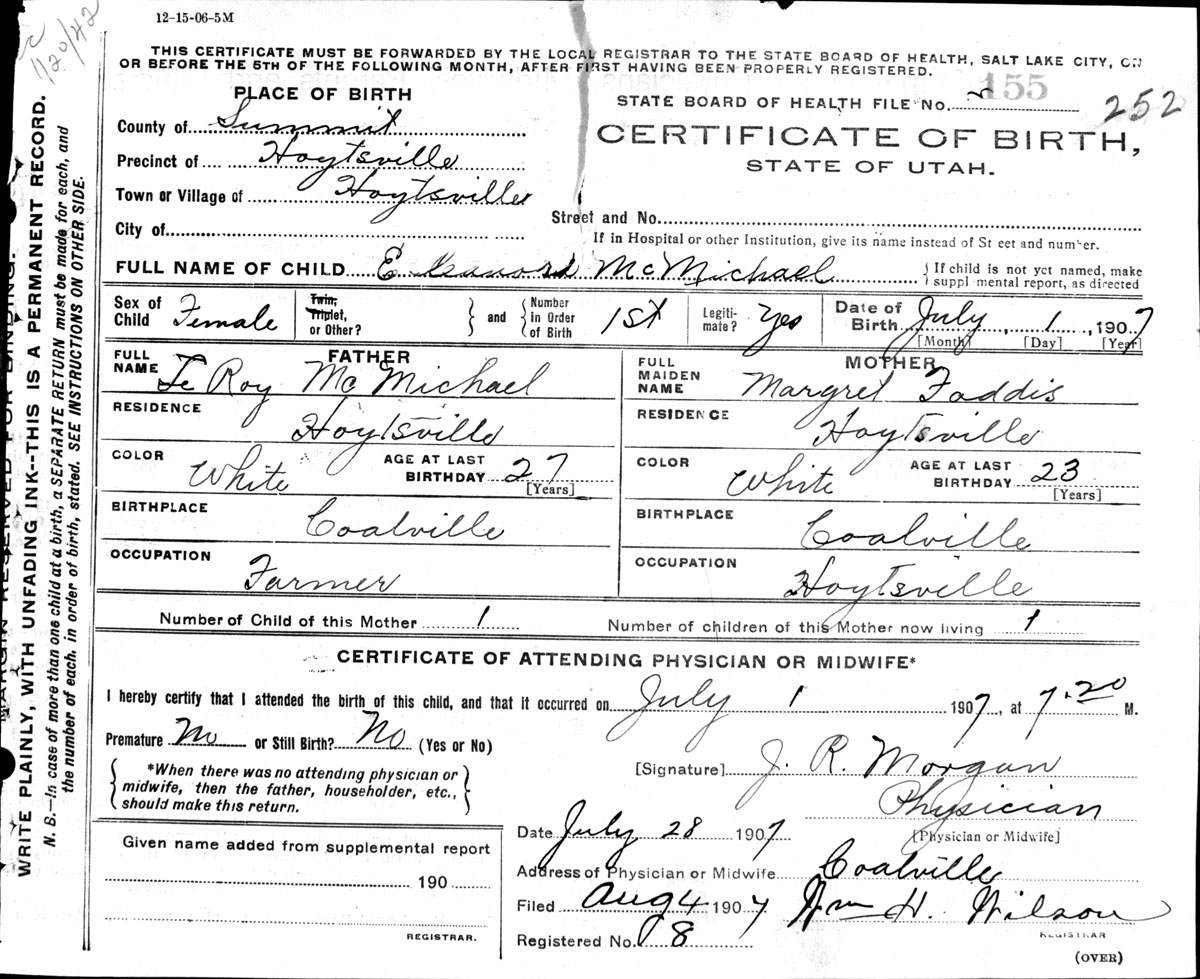 12-15-06-5M
1/20/42
THIS CERTIFICATE MUST BE FORWARDED BY THE LOCAL REGISTRAR TO THE STATE BOARD OF HEALTH, SALT LAKE CITY, ON
OR BEFORE THE 5TH OF THE FOLLOWING MONTH, AFTER FIRST HAVING BEEN PROPERLY REGISTERED.
PLACE OF BIRTH
STATE BOARD OF HEALTH FILE No. 155 252
County of Summit
CERTIFICATE OF BIRTH,
STATE OF UTAH.
Precinct of Hoytsville
Town or Village of Hoytsville
Street and No.
City of
If in Hospital or other Institution, give its name instead of St eet and number.
FULL NAME OF CHILD McMichael { If child is not yet named, make
suppl mental report, as directed
Sex of Child Female Twin, Triplet, or Other? } and { Number in Order of Birth 1st Legiti-mate? Yes Date of Birth July 1, 1907
[Month] [Day] [Year]
FATHER
FULL NAME Le Roy McMichael
MOTHER
FULL MAIDEN NAME Margret Faddis
RESIDENCE Hoytsville
RESIDENCE Hoytsville
COLOR White AGE AT LAST BIRTHDAY 27 [Years]
COLOR White AGE AT LAST BIRTHDAY 23 [Years]
BIRTHPLACE Coalville
BIRTHPLACE Coalville
OCCUPATION Farmer
OCCUPATION Hoytsville
Number of Child of this Mother 1 Number of children of this Mother now living 1
CERTIFICATE OF ATTENDING PHYSICIAN OR MIDWIFE*
I hereby certify that I attended the birth of this child, and that it occurred on July 1 1907, at 7.20 M.
Premature No or Still Birth? No (Yes or No)
{ *When there was no attending physician or
midwife, then the father, householder, etc.,
should make this return. }
[Signature] J. R. Morgan
Physician
[Physician or Midwife]
Date July 28 1907
Address of Physician or Midwife Coalville
Filed Aug 4 1907 Wm H. Wilson
REGISTRAR
Registered No. 8
(OVER)
Given name added from supplemental report
190
REGISTRAR.
MARGIN RESERVED FOR BINDING.
WRITE PLAINLY, WITH UNFADING INK--THIS IS A PERMANENT RECORD.
N. B.—In case of more than one child at a birth, a SEPARATE RETURN must be made for each, and
the number of each, in order of birth, stated. SEE INSTRUCTIONS ON OTHER SIDE.